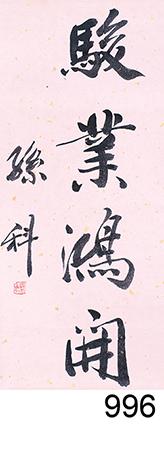 駿業鴻開
孫科
996